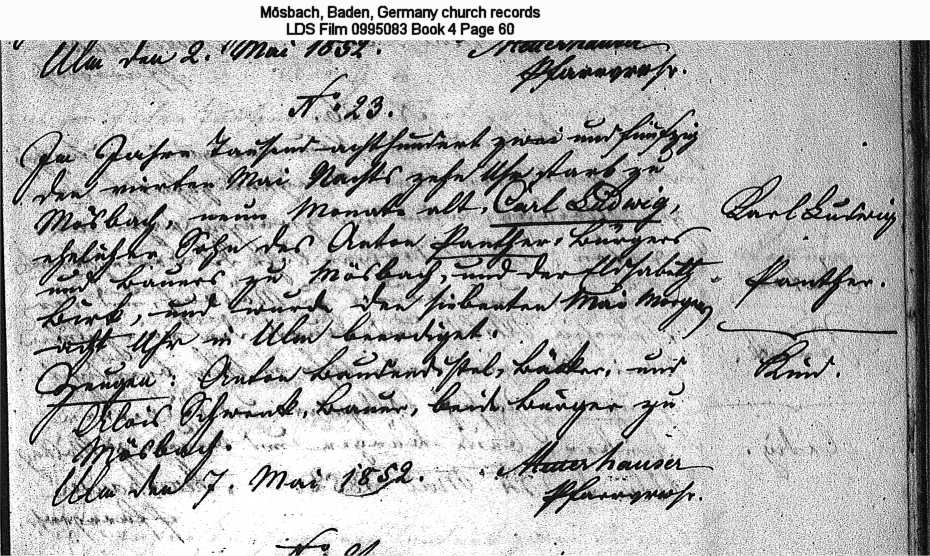 Mösbach, Baden, Germany church records
LDS Film 0995083 Book 4 Page 60
Ulm den 2. Mai 1852.
Pfarrverw.
No. 23.
Im Jahre Tausend achthundert zwei und fünfzig
den vierten Mai Nachts zehn Uhr starb zu
Mösbach, neun Monate alt, Carl Ludwig,
ehelicher Sohn des Anton Panther, Bürgers
und Bauers zu Mösbach, und der Elisabeth
Birk, und wurde den siebenten Mai Morgens
acht Uhr in Ulm beerdiget.
Zeugen: Anton Baudendistel, Bäcker, und
Alois Schwenk, Bauer, beide Bürger zu
Mösbach.
Ulm den 7. Mai 1852.
Pfarrverw.
Karl Ludwig
Panther.
Kind.
No.